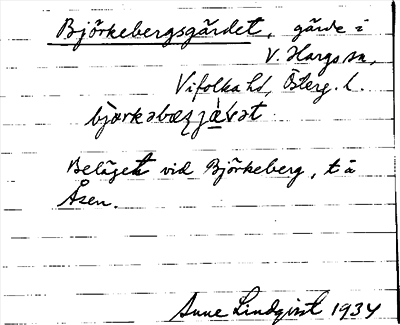 Björkebergsgärdet, gärde i
V. Hargs sn,
Vifolka hd, Österg. l.
Beläget vid Björkeberg, t. ä
Åsen.
Arne Lindqvist 1934